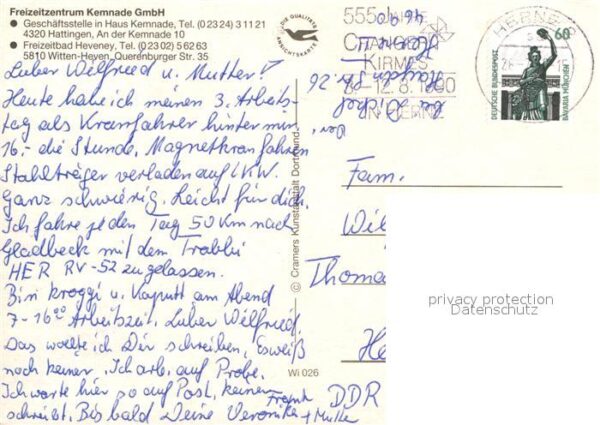 Freizeitzentrum Kemnade GmbH
● Geschäftsstelle in Haus Kemnade, Tel. (0 23 24) 3 11 21
4320 Hattingen, An der Kemnade 10
● Freizeitbad Heveney, Tel. (0 23 02) 5 62 63
5810 Witten-Heven, Querenburger Str. 35
DIE QUALITÄTS
ANSICHTSKARTE
555 JAHRE
CRANGER
KIRMES
3.-12.8.1990
IN HERNE
HERNE
60
DEUTSCHE BUNDESPOST
BAVARIA MÜNCHEN
Lieber Wilfried u. Mutter!
Heute habe ich meinen 3. Arbeits-
tag als Kranfahrer hinter mir.
16,- die Stunde, Magnetkran fahren
Stahlträger verladen auf LKW.
Ganz schwierig. Leicht für dich.
Ich fahre jeden Tag 50 km nach
Gladbeck mit dem Trabbi
HER RV-52 zugelassen.
Bin kroggi u. kaputt am Abend
7-16⁰⁰ Arbeitszeit. Lieber Wilfried.
Das wollte ich Dir schreiben, Es weiß
noch keiner. Ich arb. auf Probe.
Ich warte hier so auf Post, keiner
schreibt. Bis bald Deine Veronika
Frank
+ Mutter
© Cramers Kunstanstalt Dortmund
Wi 026
Fam.
Wil
Thomas
He
DDR
privacy protection
Datenschutz